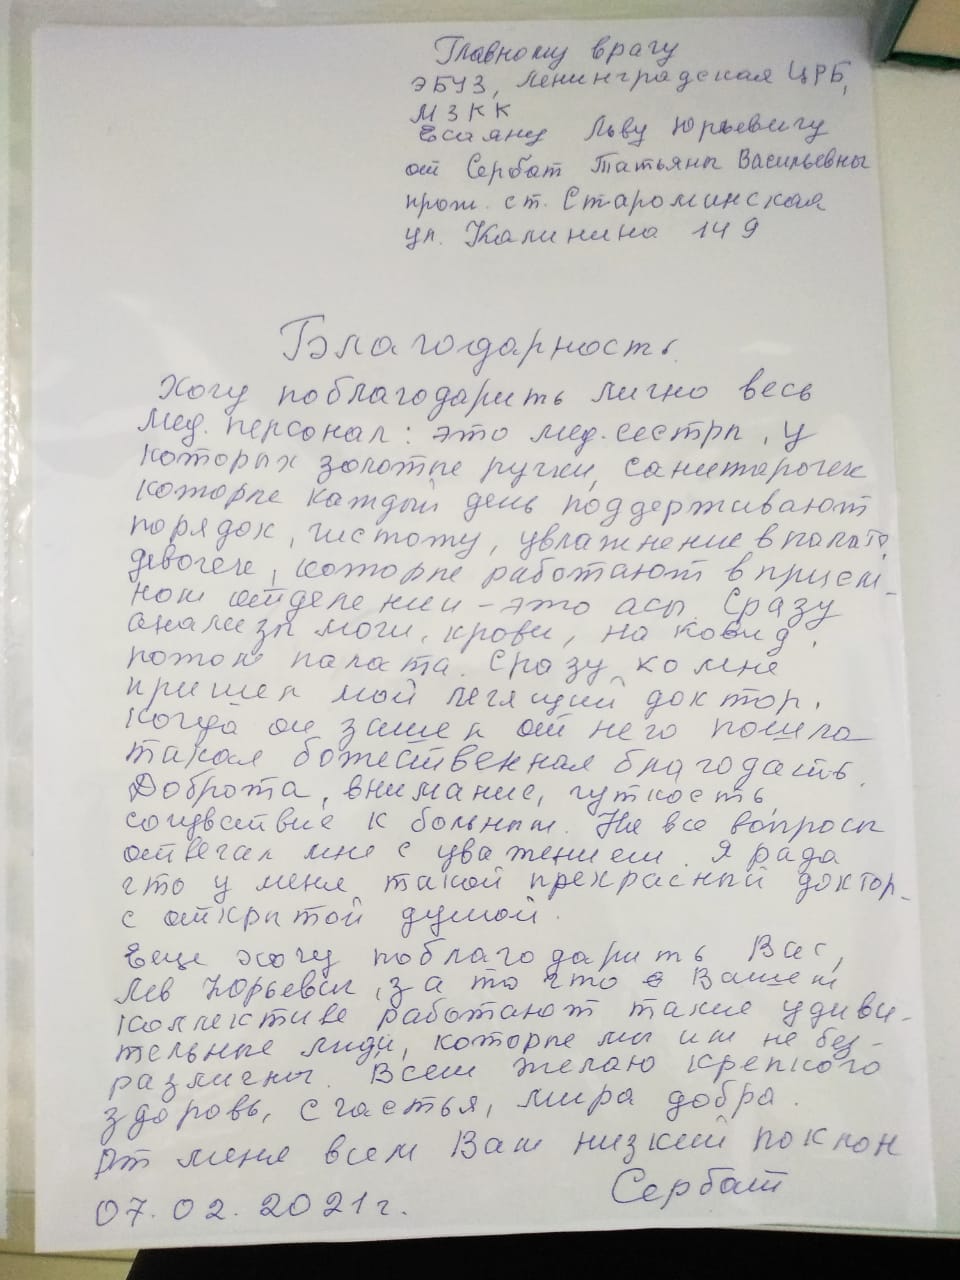 Главному врагу
ЭБУЗ, Ленинградская ЦРБ,
МЗКК
Есаяну Льву Юрьевичу
от Сербат Татьяны Васильевны
прож. ст. Староминская
ул. Калинина 149
Благодарность.
Хочу поблагодарить лично весь
мед. персонал: это мед. сестры, у
которых золотые ручки, санитарочек
которые каждый день поддерживают
порядок, чистоту, увлажнение в палате,
девочек, которые работают в прием-
ном отделении - это асы. Сразу
анализы мочи, крови, на ковид,
потом палата. Сразу ко мне
пришел мой лечащий доктор.
Когда он зашел от него пошла
такая божественная благодать.
Доброта, внимание, чуткость,
сочувствие к больным. На все вопросы
отвечал мне с уважением. Я рада
что у меня такой прекрасный доктор-
с открытой душой.
Еще хочу поблагодарить Вас,
Лев Юрьевич, за то что в Вашем
коллективе работают такие удиви-
тельные люди, которые мы им не без-
различны. Всем желаю крепкого
здоровь, счастья, мира добра.
От меня всем Вам низкий поклон
07.02.2021г. Сербат